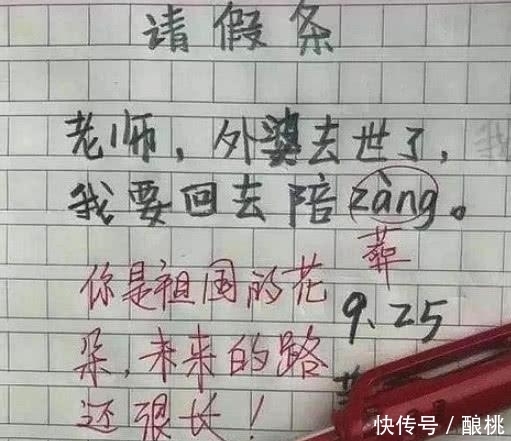 请假条
老师,外婆去世了,
我要回去陪zàng。
葬
你是祖国的花
朵,未来的路
还很长!
9.25
快传号/酿桃